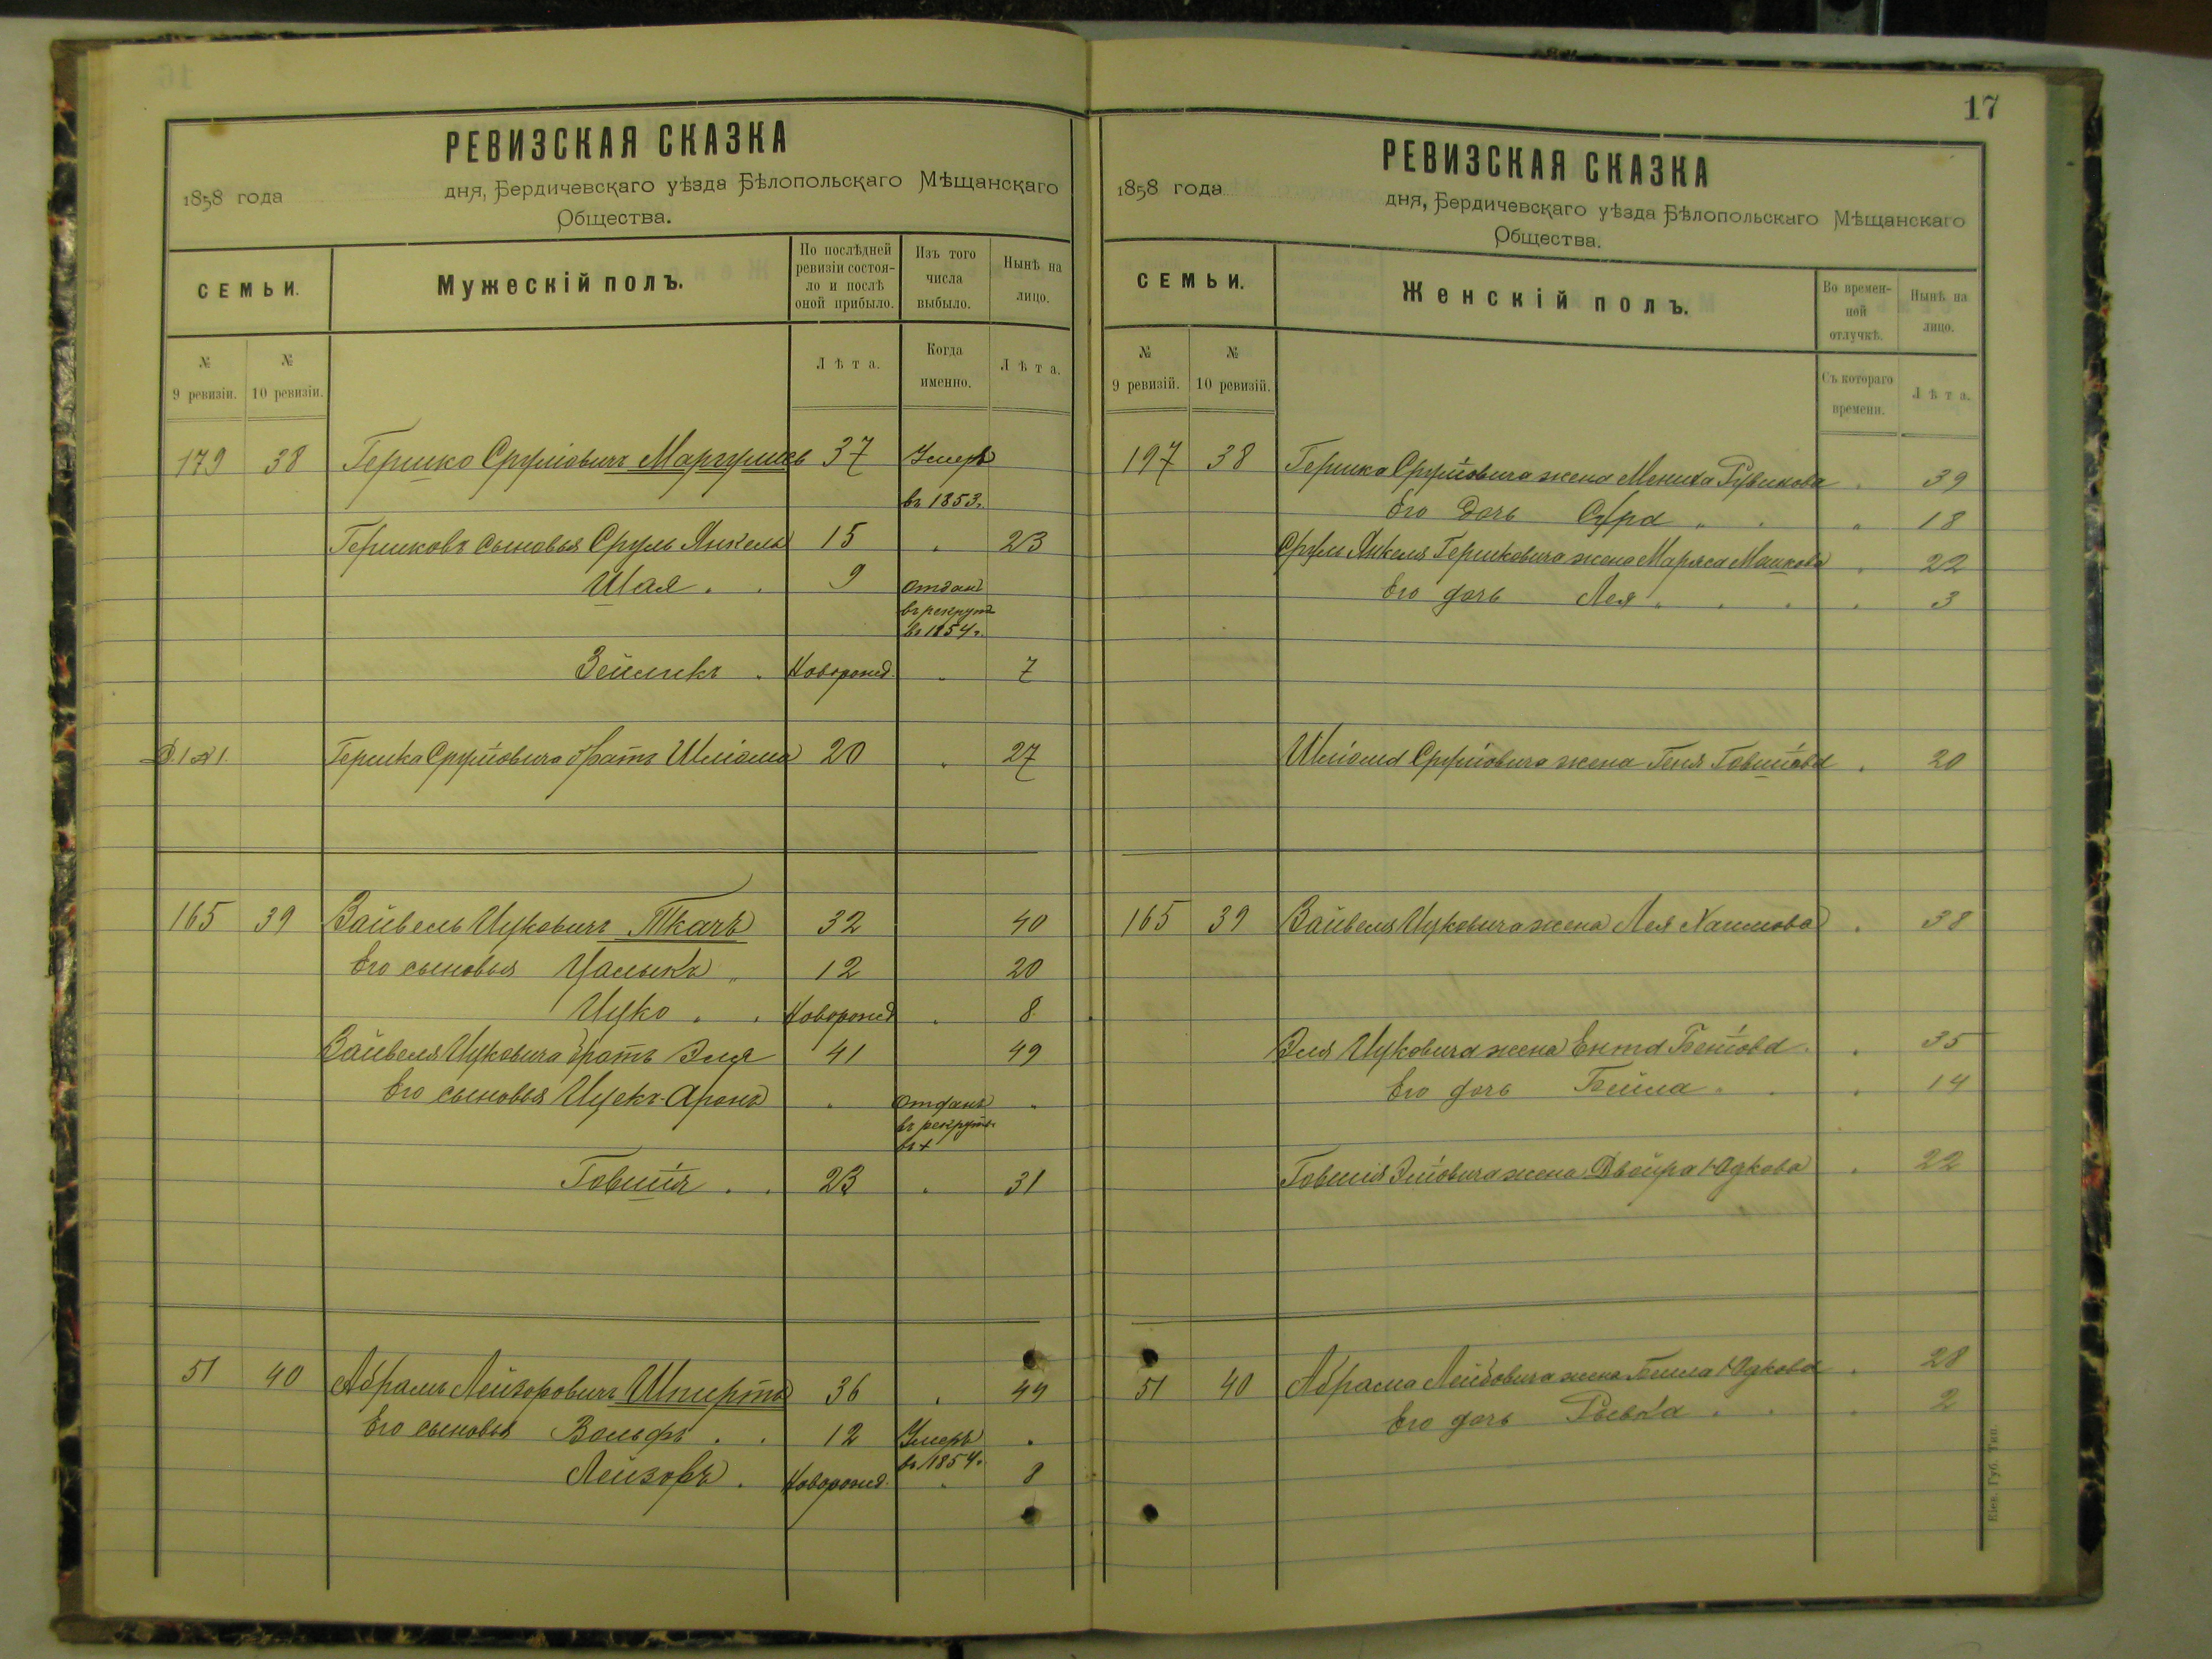 РЕВИЗСКАЯ СКАЗКА
1858 года дня, Бердичевскаго уѣзда Бѣлопольскаго Мѣщанскаго
Общества.
СЕМЬИ.
Мужескій полъ.
По послѣдней ревизіи состояло и послѣ оной прибыло.
Изъ того числа выбыло.
Нынѣ на лицо.
№ 9 ревизіи.
№ 10 ревизіи.
Лѣта.
Когда именно.
Лѣта.
179 38 Гершко Сруліовичъ Маргулисъ 37 Умеръ
въ 1853.
Гершковъ сыновья Сруль Янкель 15 " 23
Шая . . 9 отданъ
въ рекрут
въ 1854г.
Зейликъ . Новорожд. " 7
Гершка Сруліовича братъ Шліома 20 " 27
165 39 Вайвель Ицковичъ Ткачъ 32 40
Его сыновья Цалыкъ " 12 20
Ицко . . Новорожд " 8
Вайвеля Ицковича братъ Эля 41 49
Его сыновья Ицекъ-Аронъ " отданъ "
въ рекруты
въ +
Говшія . . 23 " 31
51 40 Абрамъ Лейзоровичъ Шпиртъ 36 " 44
Его сыновья Вольфъ . . 12 Умеръ .
въ 1854г.
Лейзоръ . Новорожд. " 8
17
РЕВИЗСКАЯ СКАЗКА
1858 года дня, Бердичевскаго уѣзда Бѣлопольскаго Мѣщанскаго
Общества.
СЕМЬИ.
Женскій полъ.
Во временной отлучкѣ.
Нынѣ на лицо.
№ 9 ревизій.
№ 10 ревизій.
Съ котораго времени.
Лѣта.
197 38 Гершка Сруліовича жена Мениха Рувинова . 39
Его дочь Сура " . " 18
Сруль Янкеля Гершковича жена Маряса Мошкова . 22
Его дочь Лея . . . . 3
Шліома Сруліовича жена Геня Говшіова . 20
165 39 Вайвеля Ицковича жена Лея Хаимова . 38
Эля Ицковича жена Ента Беніова . . 35
Его дочь Бейла . . . 14
Говшія Эліовича жена Двойра Юдкова . 22
51 40 Абрама Лейзовича жена Бейла Юдкова . 28
Его дочь Рывка . . . 2
Кіев. Губ. Тип.